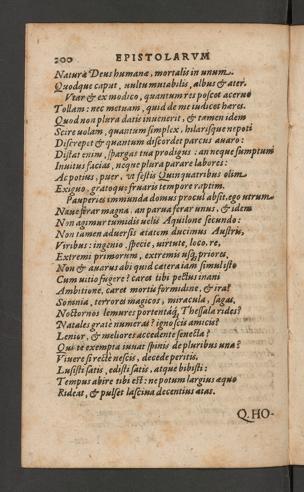 200 EPISTOLARVM
Naturæ Deus humanæ, mortalis in unum.
Quodque caput, uultu mutabilis, albus & ater.
Vtar & ex modico, quantum res poscet aceruo
Tollam: nec metuam, quid de me iudicet hæres.
Quod non plura datis inuenerit, & tamen idem
Scire uolam, quantum simplex, hilarisque nepoti
Discrepet & quantum discordet parcus auaro:
Distat enim, spargas tua prodigus: an neque sumptum
Inuitus facias, neque plura parare labores:
Ac potius, puer, ut festis Quinquatribus olim.
Exiguo, gratoque fruaris tempore raptim.
Pauperies immunda domus procul absit, ego utrum
Naue ferar magna, an parua ferar unus, & idem
Non agimur tumidis uelis Aquilone secundo:
Non tamen aduersis ætatem ducimus Austris,
Viribus: ingenio, specie, uirtute, loco, re,
Extremi primorum, extremis usq; priores.
Non es auarus abi quid cætera iam simul isto
Cum uitio fugere? caret tibi pectus inani
Ambitione, caret mortis formidine, & ira?
Somnia, terrores magicos, miracula, sagas,
Nocturnos lemures portentaq; Thessala rides?
Natales gratè numeras? ignoscis amicis?
Lenior, & melior es accedente senecta?
Qui te exempta iuuat spinis de pluribus una?
Viuere si rectè nescis, decede peritis.
Lusisti satis, edisti satis, atque bibisti:
Tempus abire tibi est: ne potum largius æquo
Rideat, & pulset lasciua decentius ætas.
Q. HO-